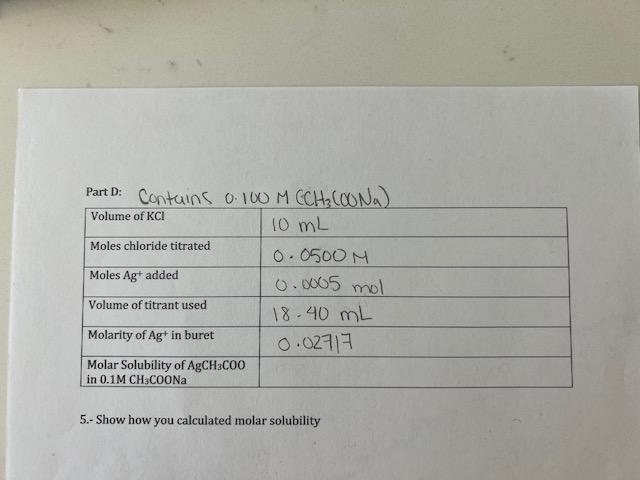 Part D: Contains 0.100 M (CH3COONa)
Volume of KCl 10 mL
Moles chloride titrated 0.0500 M
Moles Ag+ added 0.0005 mol
Volume of titrant used 18.40 mL
Molarity of Ag+ in buret 0.02717
Molar Solubility of AgCH3COO
in 0.1M CH3COONa
5.- Show how you calculated molar solubility